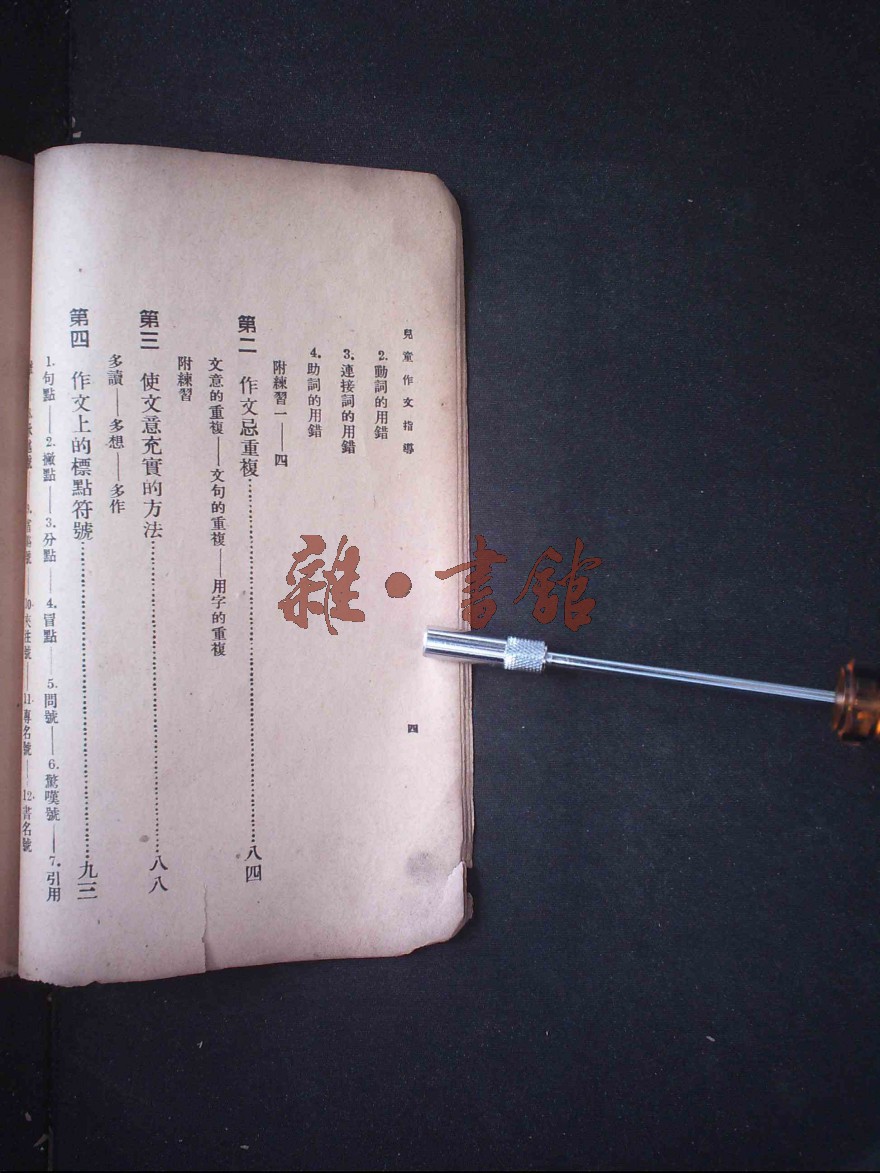 兒童作文指導
四
2.動詞的用錯
3.連接詞的用錯
4.助詞的用錯
附練習一——四
第二 作文忌重複……八四
文意的重複——文句的重複——用字的重複
附練習
第三 使文意充實的方法……八八
多讀——多想——多作
第四 作文上的標點符號……九三
1.句點——2.撇點——3.分點——4.冒點——5.問號——6.驚嘆號——7.引用
10.夾注號——11.專名號——12.書名號
雜·書館